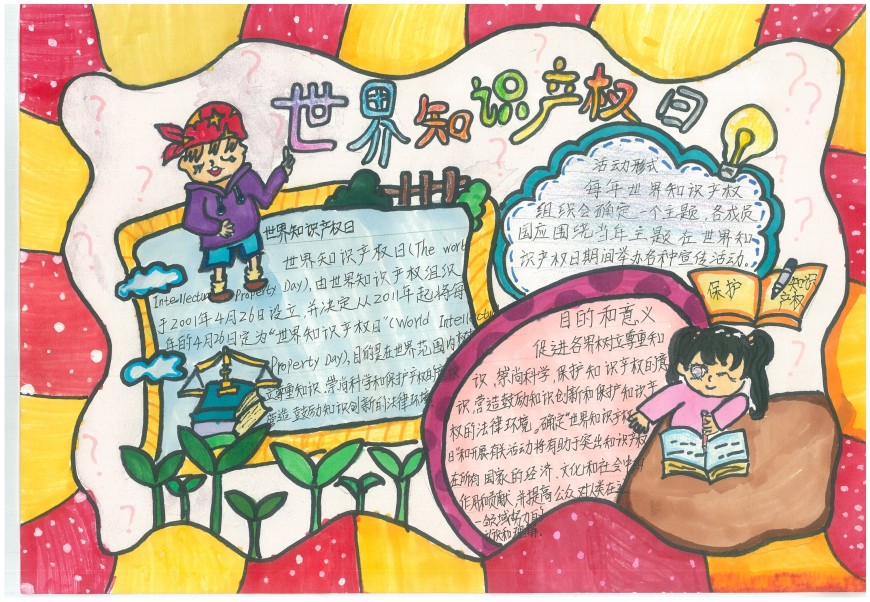 世界知识产权日
世界知识产权日
世界知识产权日(The world
Intellectu Property Day),由世界知识产权组织
于2001年4月26日设立,并决定从2011年起将每
年的4月26日定为"世界知识产权日"(World Intellectu
Property Day),目的是在世界范围内树
立尊重知识、崇尚科学和保护产权的
营造鼓励知识创新的法律环境
活动形式
每年世界知识产权
组织会确定一个主题,各成员
国应围绕当年主题在世界知
识产权日期间举办各种宣传活动。
保护
知识
产权
目的和意义
促进各界树立尊重知
识、崇尚科学、保护知识产权的意
识,营造鼓励知识创新和保护知识产
权的法律环境。确定"世界知识产权
日"和开展有关活动将有助于突出知识产权
在所有国家的经济、文化和社会中的
作用和贡献,并提高公众对人类在这
一领域努力的